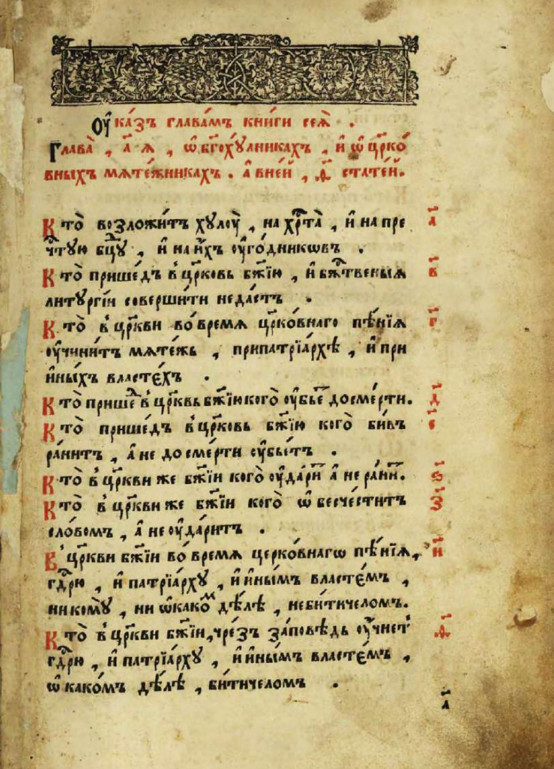 Оу҆ка́зъ главамъ кни́ги сеѧ̀ .
Глава̀ , а҃ ѧ , ѡ҆ бг҃охꙋ́лникахъ , и҆ ѡ҆ цр҃ко́
вныхъ мѧте́жникахъ . а҆ вне́й , ѳ҃ стате́й.
Кто̀ возложи́тъ хꙋлоу̀ , на хрⷭ҇та̀ , и҆ на пре а҃
чⷭ҇тꙋю бцⷣꙋ , и҆ на и҆́хъ оу҆го́дникѡвъ .
Кто̀ прише́дъ в цр҃ковь бж҃їю , и҆ бжⷭ҇твеныѧ в҃
литꙋргїи соверши́ти неда́стъ .
Кто̀ в цр҃кви во́ времѧ цр҃ко́внаго пѣ́нїѧ г҃
оу҆чини́тъ мѧте́жь , припатрїа́рхѣ , и҆ при
и҆ны́хъ власте́хъ .
Кто̀ пришеⷣ в цр҃квь бж҃їю кого̀ оу҆бье́ до сме́рти. д҃
Кто̀ прише́дъ в цр҃ковь бж҃їю кого̀ би́въ є҃
ра́нитъ , а҆ не до сме́рти оу҆бье́тъ .
Кто̀ в цр҃кви же бж҃їи кого̀ оу҆да́ри а҆ не ра́ни. ѕ҃
Кто̀ в цр҃кви же бж҃їи кого̀ ѡ҆бесче́ститъ з҃
сло́вомъ , а҆ не оу҆да́ритъ .
В цр҃кви бж҃їи во́ времѧ церко́внагѡ пѣ́нїѧ, и҃
гдⷭ҇рю , и҆ патрїа́рхꙋ , и҆ и҆ны́мъ власте́мъ ,
никомꙋ̀ , ни ѡ҆ како́ⷨ дѣ́лѣ , небитичело́мъ.
Кто̀ в цр҃кви бж҃їи, чрез̾ за́повѣдь оу҆чне́т ѳ҃
гдⷭ҇рю , и҆ патрїа́рхꙋ , и҆ и҆ны́мъ власте́мъ ,
ѡ҆ како́мъ дѣ́лѣ , битичело́мъ .
а҃